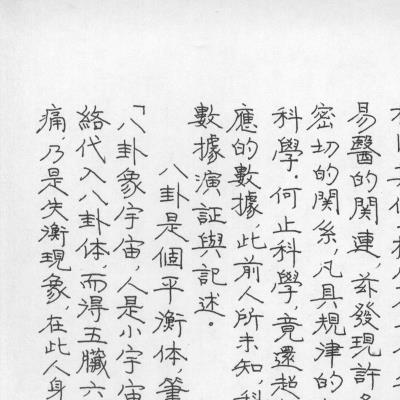 易醫的關連，茲發現許
密切的關係，凡具規律的
科學。何止科學，竟還超
應的數據，此前人所未知，科
數據演証與記述。
八卦是個平衡体，筆
「八卦象宇宙，人是小宇宙
絡代入八卦体，而得五臟六
痛，乃是失衡現象，在此人身